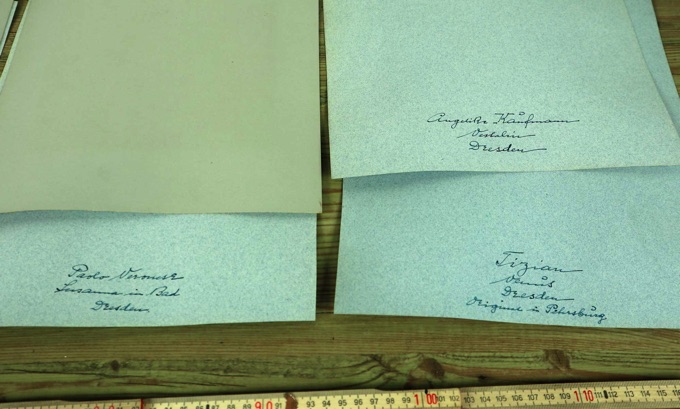 Angelika Kaufmann
Vestalin
Dresden
Paolo Veronese
Susanna im Bad
Dresden
Tizian
Venus
Dresden
Original in Petersburg
90
93 94 95 96 97 98 99 100 101 102 103 104 105 106 107 108 109 110 111 112 113 114 115